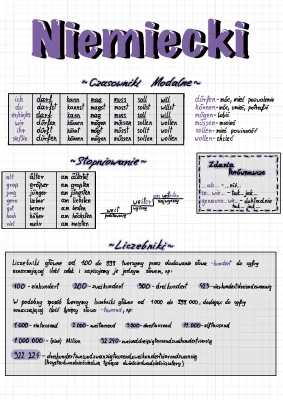 Niemiecki
~Czasowniki Modalne~
ich darf kann mag muss soll will
du darfst kannst magst musst sollst willst
er/sie/es darf kann mag muss soll will
wir dürfen können mögen müssen sollen wollen
ihr dürft könnt mögt müsst sollt wollt
sie/Sie dürfen können mögen müssen sollen wollen
dürfen - móc, mieć pozwolenie
können - móc, umieć, potrafić
mögen - lubić
müssen - musieć
sollen - mieć powinność
wollen - chcieć
~Stopniowanie~
alt älter am ältesten
groß größer am größten
jung jünger am jüngsten
gern lieber am liebsten
gut besser am besten
hoch höher am höchsten
viel mehr am meisten
weit
weiter
Zdania
porównawcze
als
so wie - tak jak
genauso wie - dokładnie
tak jak
~Liczebniki~
Liczebniki główne od 100 do 999 tworzymy przez dodawanie słowa -hundert do cyfry
oznaczającej ilość setek i zapisujemy je jednym słowem, np:
100 - einhundert 200 - zweihundert 300 - dreihundert
W podobny sposób tworzymy liczebniki główne od 1 000 do 999 000, dodając do cyfry
oznaczającej ilość tysięcy słowo -tausend, np:
1 000 - eintausend 2 000 - zweitausend 3 000 - dreitausend 11 000 - elftausend
1 000 000 - (eine) Million